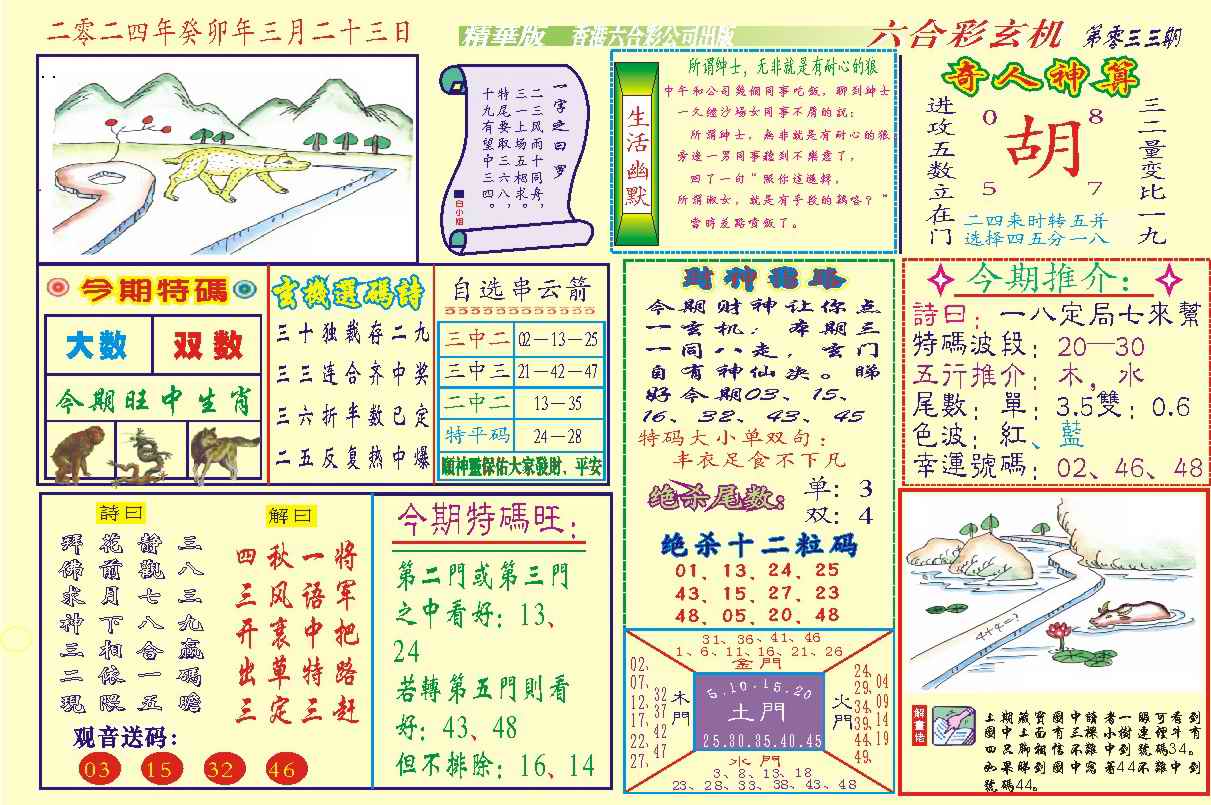 二零二四年癸卯年三月二十三日
精華版 香港六合彩公司出版
六合彩玄机 第零三三期
一字之曰 罗
二三风雨十同舟，
三一上场五相求。
特尾要取三六八，
十九有望中三四。
白小姐
生活幽默
所谓绅士，无非就是有耐心的狼
中午和公司幾個同事吃飯，聊到紳士
一久經沙場女同事不屑的説：
所謂紳士，無非就是有耐心的狼
旁邊一男同事聽到不樂意了，
回了一句“照你這邏輯，
所謂淑女，就是有手段的鷄咯？”
當時差點噴飯了。
奇人神算
进攻五数立在门
0 8
胡
5 7
三二量变比一九
二四来时转五并
选择四五分一八
今期特碼
大数 双数
今期旺中生肖
玄機選碼詩
三十独裁存二九
三三连合齐中奖
三六折半数已定
二五反复热中爆
自选串云箭
三中二 02—13—25
三中三 21—42—47
二中二 13—35
特平码 24—28
願神靈保佑大家發財、平安
財神指路
今期财神让你点
一玄机：本期三
一同八走，玄门
自有神仙决。睇
好今期03、15、
16、32、43、45
特码大小单双句：
丰衣足食不下凡
绝杀尾数：
单：3
双：4
绝杀十二粒码
01、13、24、25
43、15、27、23
48、05、20、48
今期推介：
詩曰：一八定局七來幫
特碼波段：20—30
五行推介：木，水
尾數：單：3.5雙：0.6
色波：紅、藍
幸運號碼：02、46、48
詩曰
三八三九赢碼瞻
靜觀七八合一五
花前月下相依偎
拜佛求神三二現
解曰
将军把路赶
一语中特三
秋风裹草定
四三开出三
观音送码：
03 15 32 46
今期特碼旺：
第二門或第三門
之中看好：13、
24
若轉第五門則看
好：43、48
但不排除：16、14
31、36、41、46
1、6、11、16、21、26
金門
02、07、12、17、22、27、
32 37 42 47
木門
5.10.15.20
土門
25.30.35.40.45
火門
24、29、34、39、44、49、
04 09 14 19
水門
3、8、13、18
23、28、33、38、43、48
4+4=?
解畫佬
上期藏寶圖中讀者一眼可看到
圖中上面有三棵小樹連徑牛有
四只脚相信不難中到號碼34。
如果睇到圖中寫著44不難中到
號碼44。